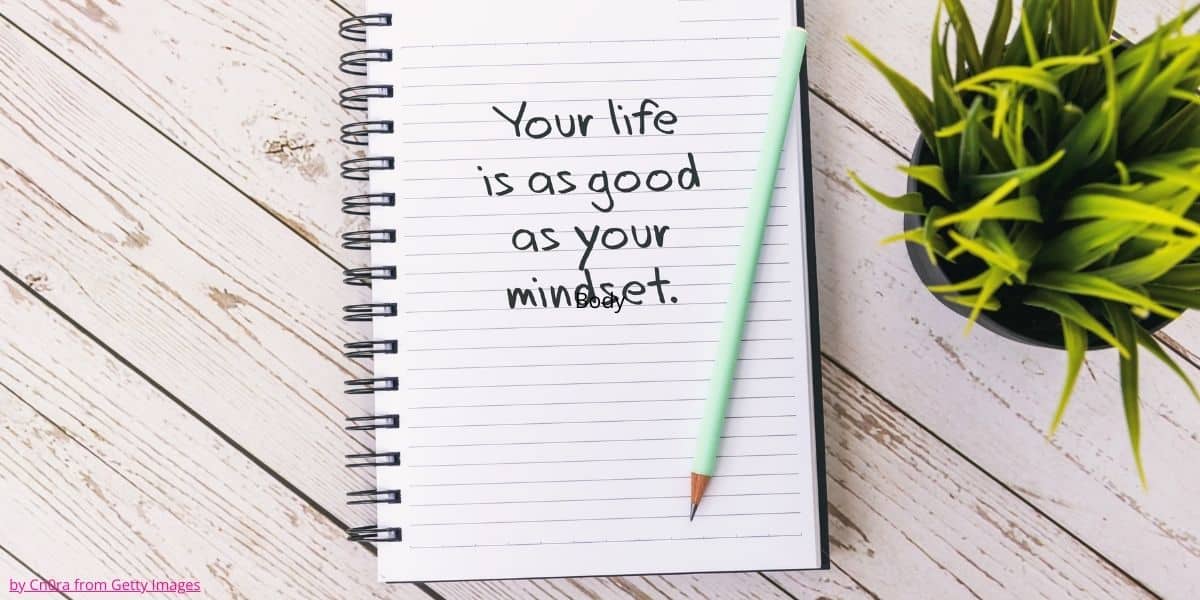 Your life
is as good
as your
mindset.
Body
by Cn0ra from Getty Images